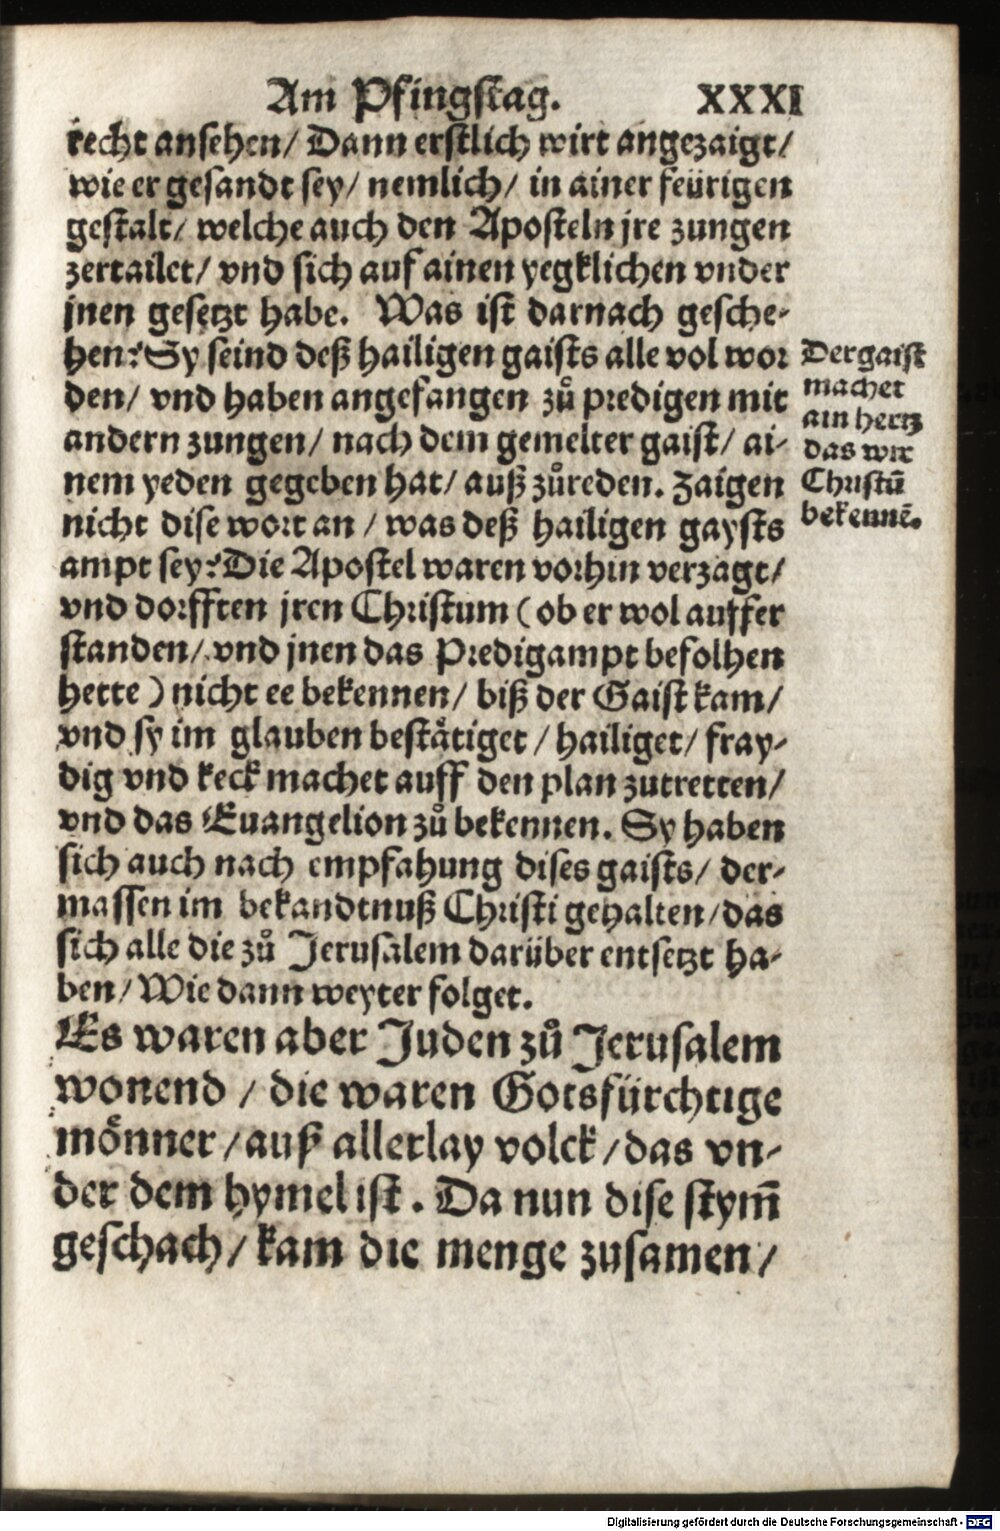 Am Pfingstag. XXXI
recht ansehen/ Dann erstlich wirt angezaigt/
wie er gesandt sey/ nemlich/ in ainer feürigen
gestalt/ welche auch den Aposteln jre zungen
zertailet/ vnd sich auf ainen yegklichen vnder
jnen gesetzt habe. Was ist darnach gesche-
hen? Sy seind deß hailigen gaists alle vol wor
den/ vnd haben angefangen zů predigen mit
andern zungen/ nach dem gemelter gaist/ ai-
nem yeden gegeben hat/ auß zůreden. Zaigen
nicht dise wort an / was deß hailigen gaysts
ampt sey? Die Apostel waren vorhin verzagt/
vnd dorfften jren Christum ( ob er wol auffer
standen/ vnd jnen das Predigampt befolhen
hette ) nicht ee bekennen/ biß der Gaist kam/
vnd sy im glauben beståtiget / hailiget/ fray-
dig vnd keck machet auff den plan zutretten/
vnd das Euangelion zů bekennen. Sy haben
sich auch nach empfahung dises gaists/ der-
massen im bekandtnuß Christi gehalten/ das
sich alle die zů Jerusalem darüber entsetzt ha-
ben/ Wie dann weyter folget.
Es waren aber Juden zů Jerusalem
wonend / die waren Gotsfürchtige
mönner / auß allerlay volck / das vn-
der dem hymel ist . Da nun dise stym̄
geschach / kam die menge zusamen /
Der gaist
machet
ain hertz
das wir
Christū
bekennē.
Digitalisierung gefördert durch die Deutsche Forschungsgemeinschaft - DFG